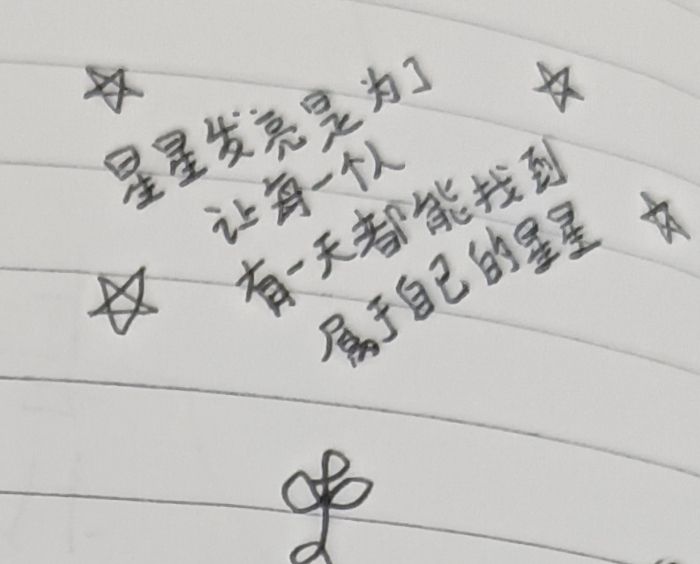 星星发亮是为了
让每一个人
有一天都能找到
属于自己的星星